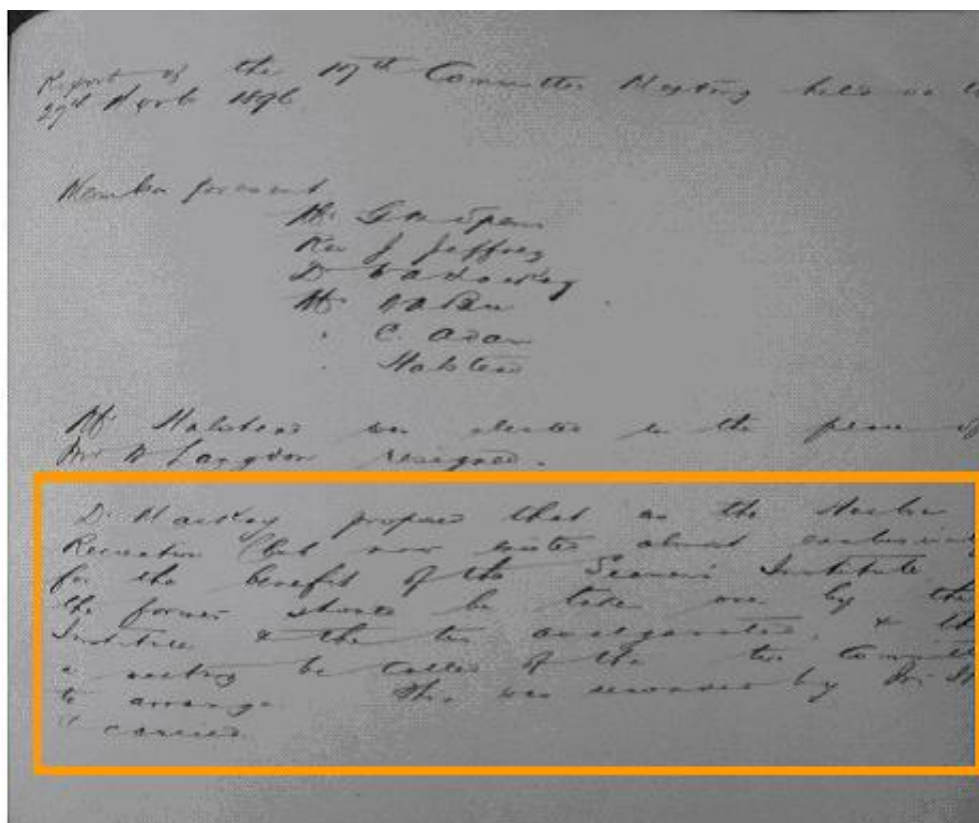 Report of the 107th Committee Meeting held on the
29th 1896
Members present
Mr G Spain
Rev J Jeffrey
Dr Mackey
Mr
C. Adam
Halstead
Mr Halstead was elected in the place of
Mr W Langdon resigned.
Dr Mackay proposed that as the Anchor
Recreation Club now exists almost exclusively
for the benefit of the Seamen's Institute
the former should be taken over by the
Institute & the two amalgamated, & that
a meeting be called of the two Committees
to arrange. This was seconded by Mr
& carried